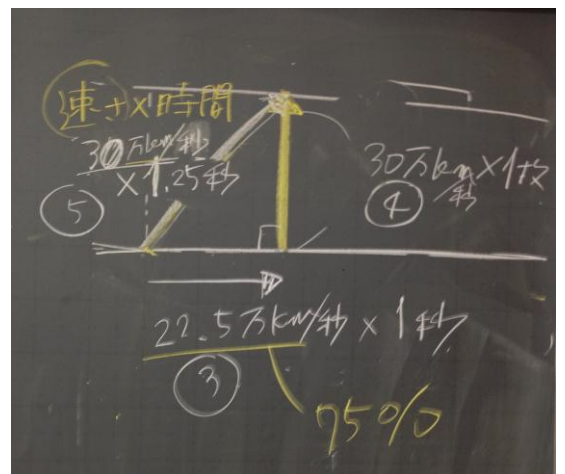 速さ×時間
30万km/秒
×1.25秒
⑤
30万km/秒×1秒
④
22.5万km/秒×1秒
③
75%